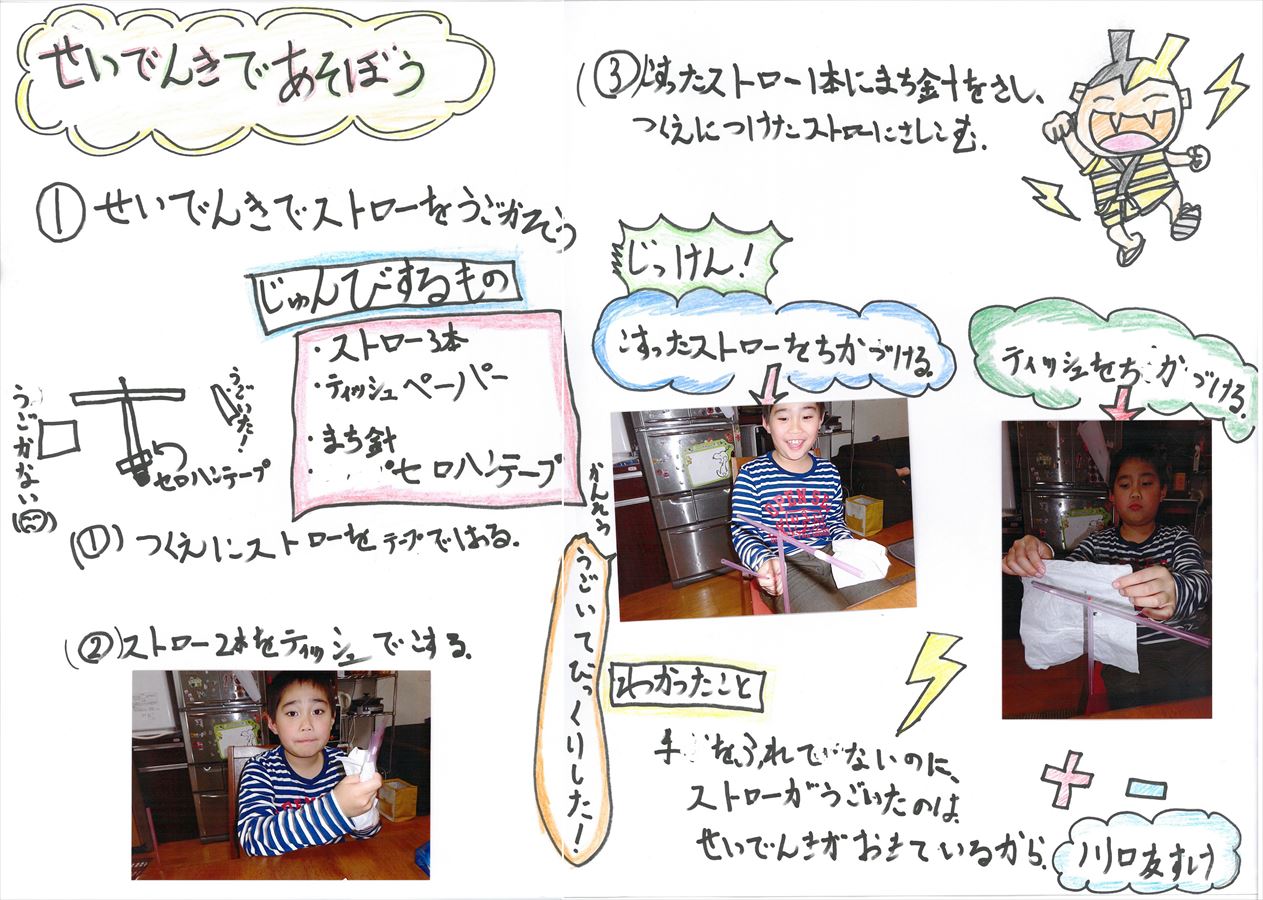 せいでんきであそぼう
① せいでんきでストローをうごかそう
じゅんびするもの
・ストロー3本
・ティッシュペーパー
・まち針
・セロハンテープ
うごかない
うごいた!
セロハンテープ
(①) つくえにストローをテープではる.
(②) ストロー2本をティッシュでこする.
(③) こすったストロー1本にまち金十をさし、
つくえにつけたストローにさしこむ.
じっけん!
こすったストローをちかづける.
ティッシュをちかづける.
かんそう
うごいてびっくりした!
わかったこと
手をふれてないのに、
ストローがうごいたのは
せいでんきがおきているから.
+ -
川口友すけ